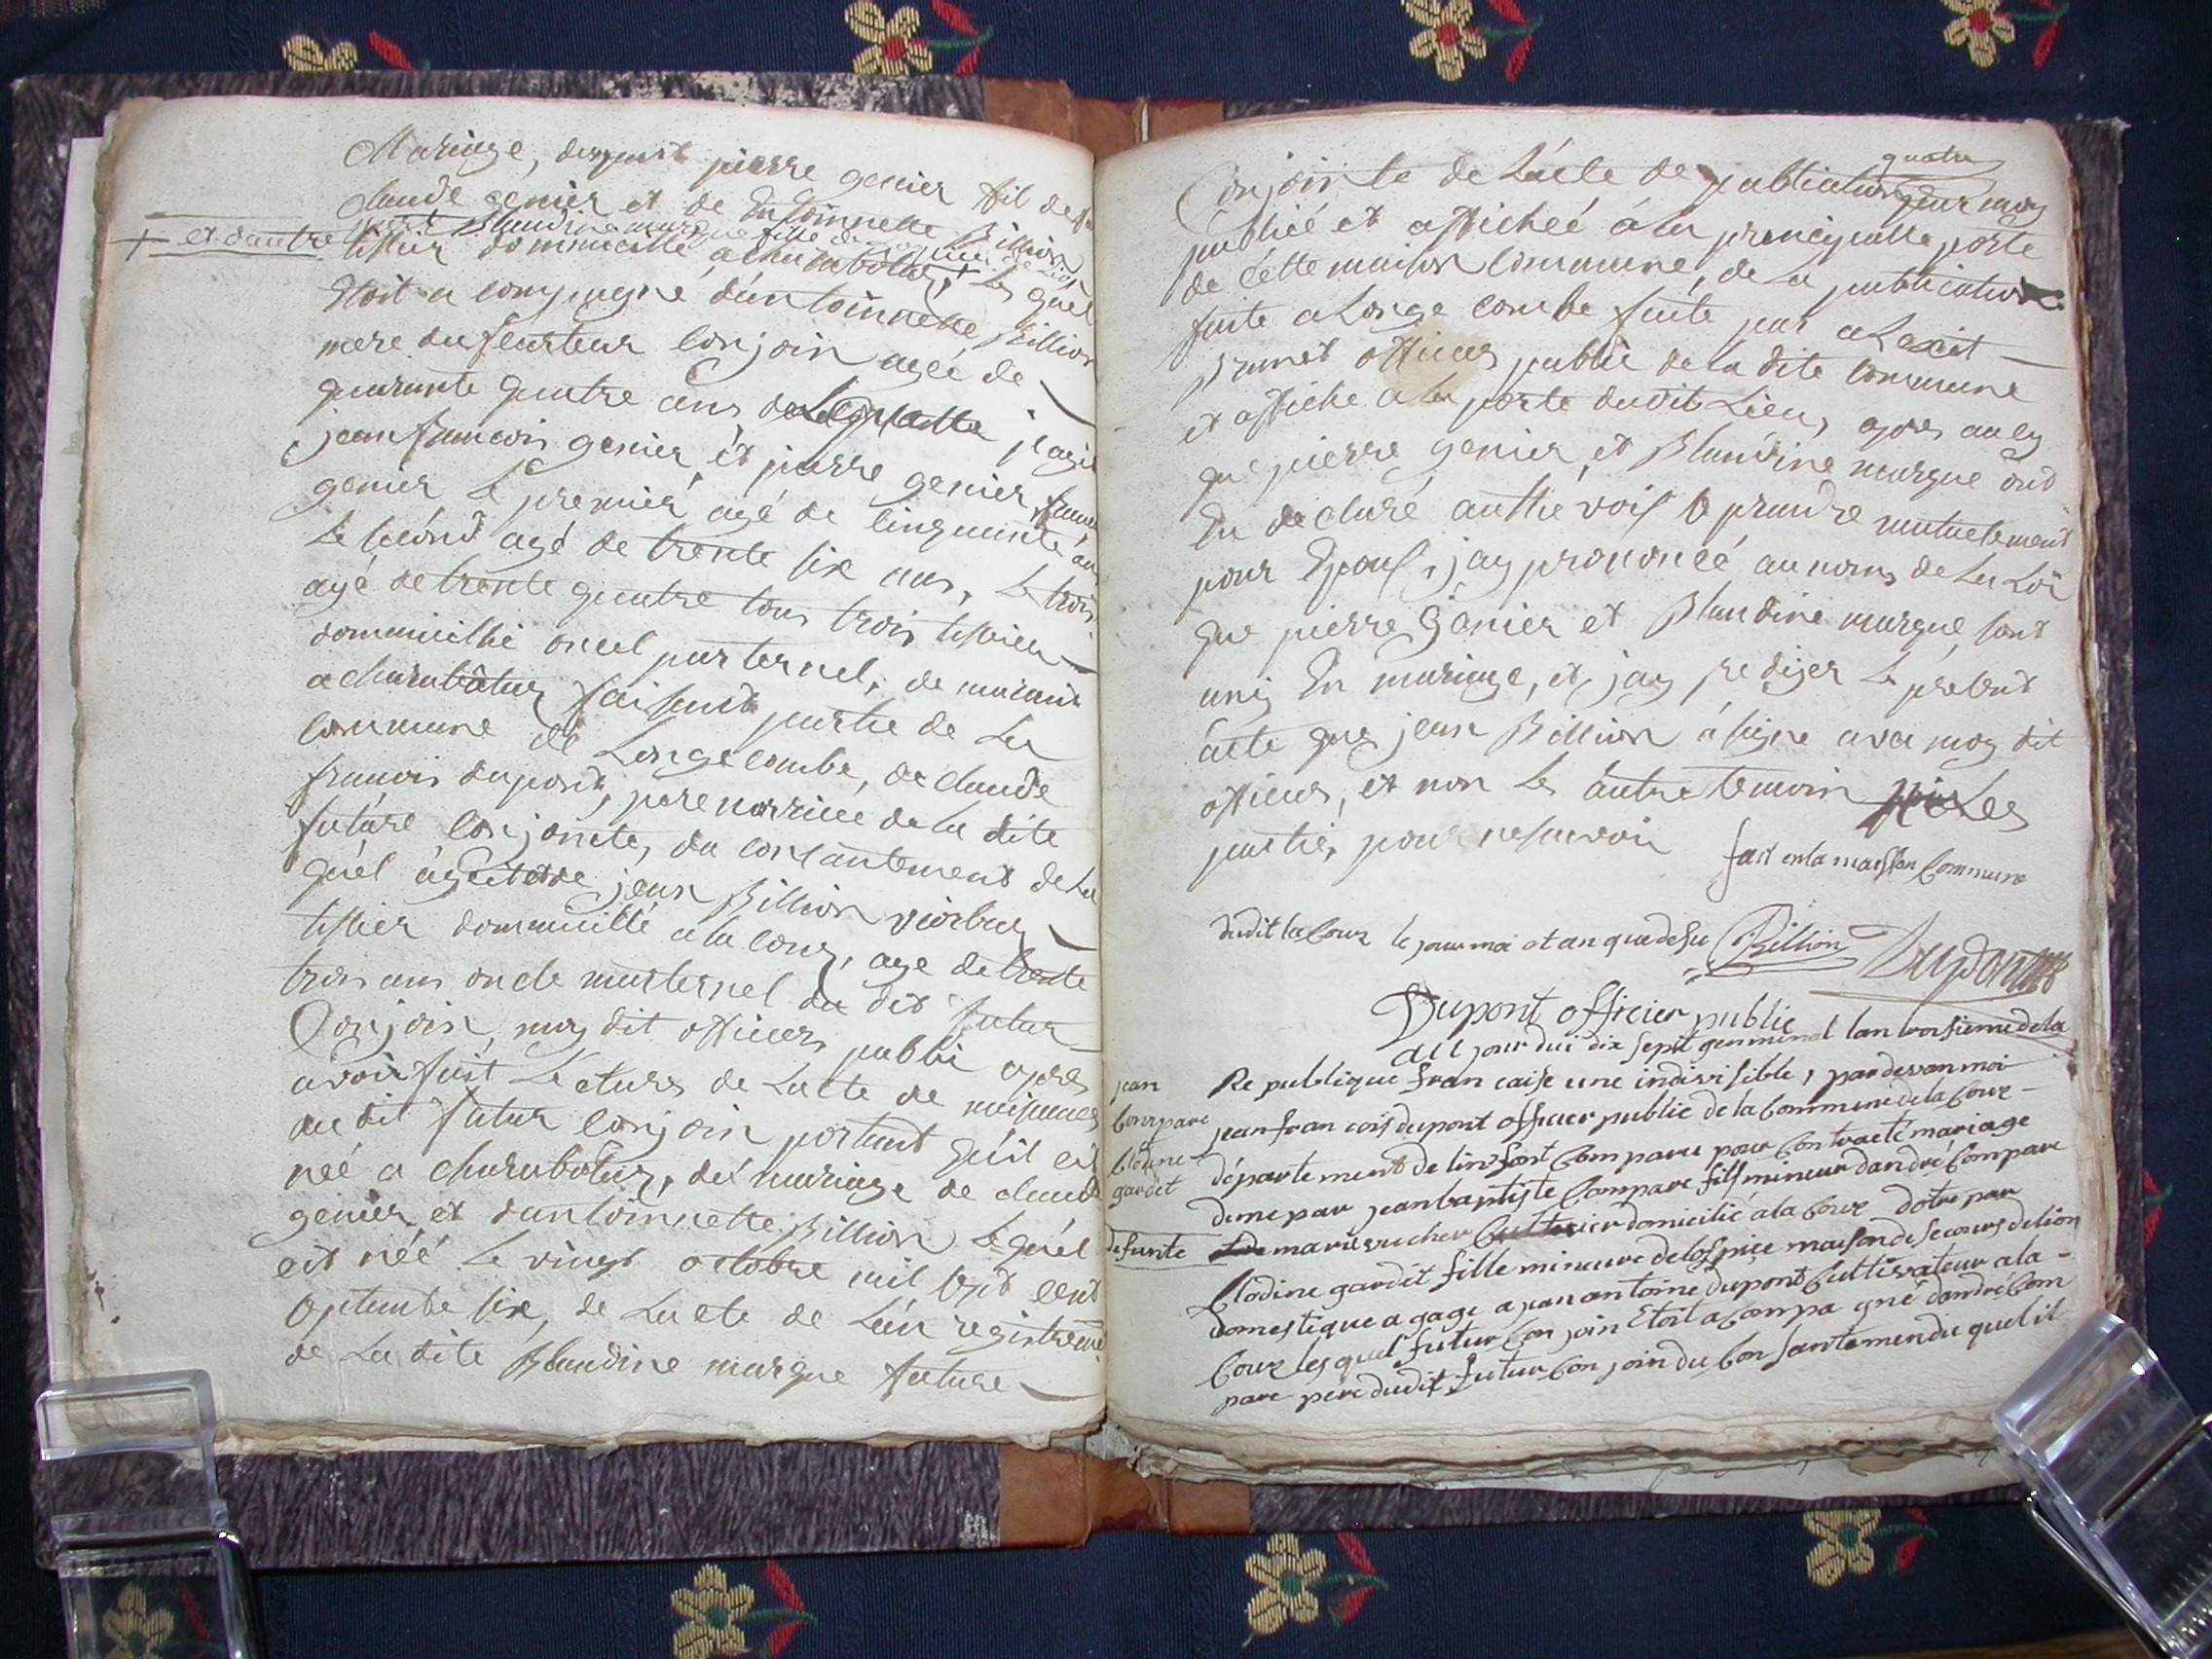 Mariage, derpart pierre genier fil de
claude genier et de Entoinnette Billion
+ et dautre part Blandine murque fille de
tissier dommicillé a charabotur, + Les quel
Etoit a compagné dantoinnette Billion
mere du feurteur Conjoin agée de
quarante quatre ans
jean francois genier et pierre genier,
genier Le premier agé de cinquante an
Le second agé de trente six ans, Le trois
agé de trente quatre tous trois tissier
dommicillié oncel parternel, de
a charabâtur faisant partie de La
Commune de Longecombe, de claude
francois dupont, pere norricie de La dite
future Conjointe, du consantement de La
quél jean Billion viorbur
tissier dommicillié a la Cour, age de trente
trois ans oncle marternel du dit futur
Conjoin, moy dit officier public apres
avoir fait Lecture de Lacte de naisance
du dit futur Conjoin portant quil est
neé a charabotur, dé mariage de claude
genier et dantoinnette Billion Lequél
est néé Le vingt octobre mil sept cent
septante six, de Lacte de Lén registreme
de La dite Blandine murque future
Conjointe de Lácte de publication quatre
par moy
publié et affichéé á la principalle porte
de cétte maison Commune, de La publication
faite a Longe combe faite par alexit
Brunet officier public de la dite Commune
et affiche a La porte dudit Lieu, apres
que pierre genier, et Blandine murque ont
Eu declaré authe voix se prandre mutuelement
pour Epouf, jay prononcé au nom de La Loi
que pierre Genier et Blandine murque sont
uniy En mariage, et jay rediger Le présent
ácte que jean Billion á signe avec moy dit
officier, et non Les autre temoin Les
partie, pour ne savoir fait en la maison Commune
dudit la Cour le jour moi et an que desu Billion Dupont
Dupont officier public
aujour dui dix sept germinal lan troisieme dela
jean Republique fran caise une indivisible, pardevan moi
Compare jean fran cois dupont officier public de la Commune dela Cour
Clodine département de linf sont Comparu pour Contracté mariage
gardet dune par jean baptiste Compare fils mineur dandré Compare
defunte marie vucher domicilié a la Cour dotre par
Clodine gardit fille mineure delospice maison de secours delion
domestique a gage a jean antoine dupont Cultivateur a la
Cour lesquel futur Con join Etoit a Compa gné dandré Com
pare pere dudit futur Con join du Con santemendu quel il